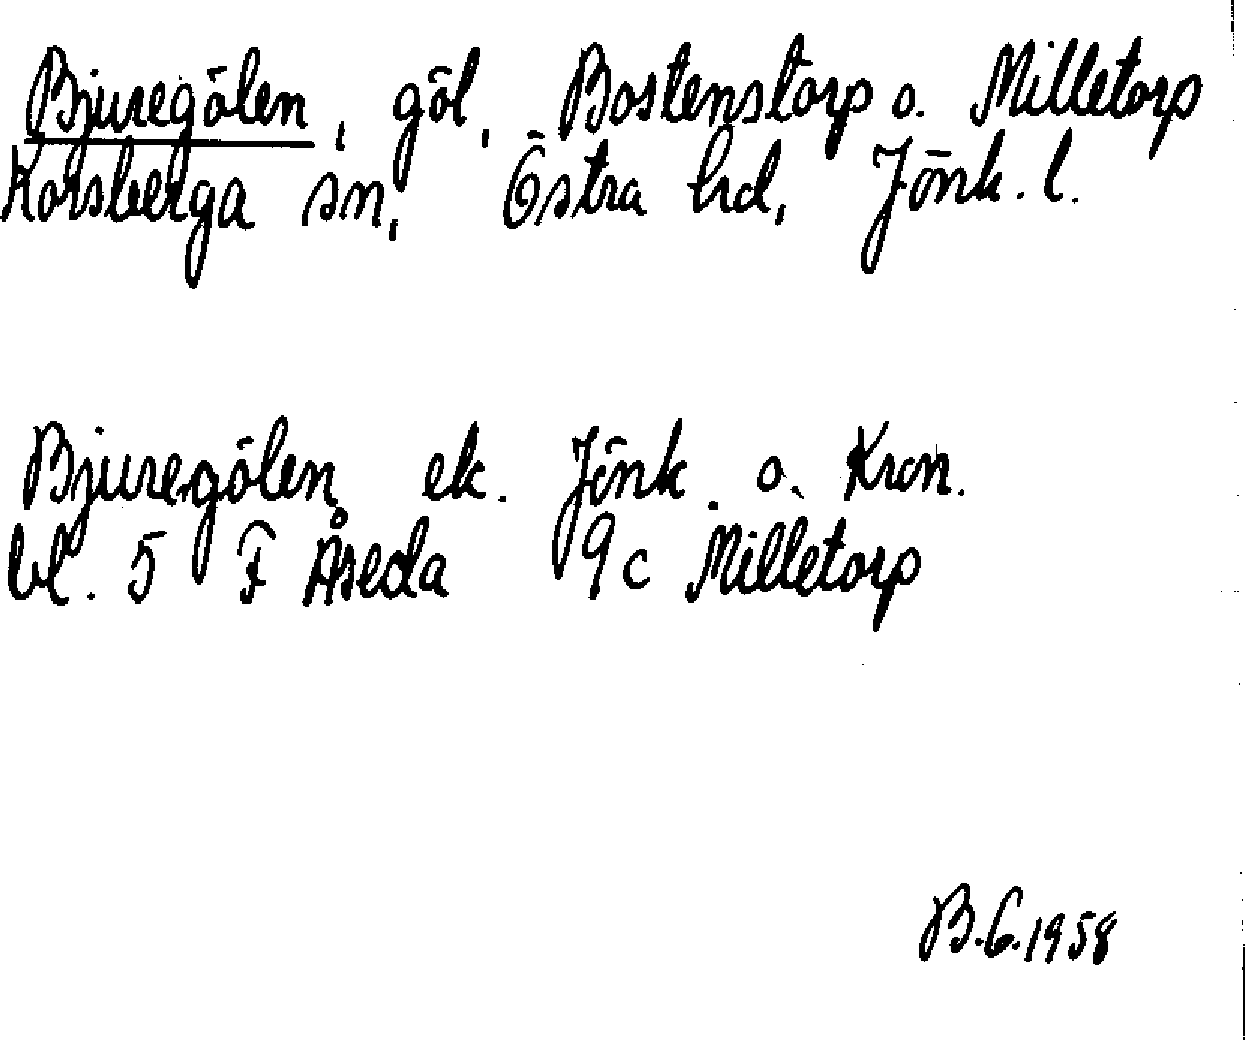 Bjuregölen, göl, Bostenstorp o. Milletorp
Korsberga sn, Östra hd, Jönk. l.
Bjuregölen ek. Jönk. o. Kron.
bl. 5 F Åseda 9c Milletorp
B.G.1958